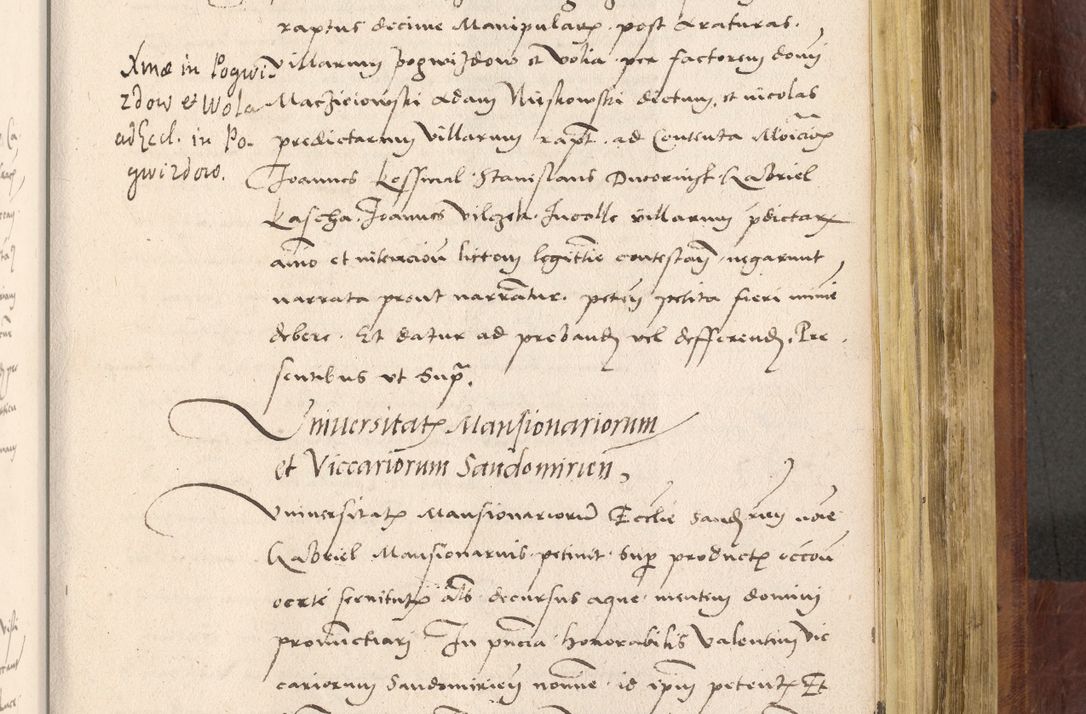 raptus decime Manipularꝝ post Araturas.
Xmæ in Pogwi
zdow et Wola
ad Eccl. in Po-
gwizdow.
villarum Pogwizdow et Volia per factorem domi
Maczieiowski Adam Niskowski dictum, et nicolas
predictarum villarum rapt. ad Contenta
Joannes Stanislaus Gabriel
Kascha. Joannes Vilczek. Incolle villarum pdictarꝝ
animo et intencioni littem legittie contestam negarunt
narrata prout narrantur. peten petita fieri minie
debere. Et datur ad proband vel defferend. Pre
sentibus ut Supra.
Vniuersitatꝭ Mansionariorum
et Viccariorum Sandomirien
Vniuersitatꝭ Mansionariorū Ecclie Sandrien noie
Gabriel Mansionarius petiuit Sup productꝭ
certe seruitutꝭ als decursus aque mentem domini
pronunctiari In pncia honorabilis Valentini Vic
cariorum Sandomirien nomine id ipm petentꝭ Et